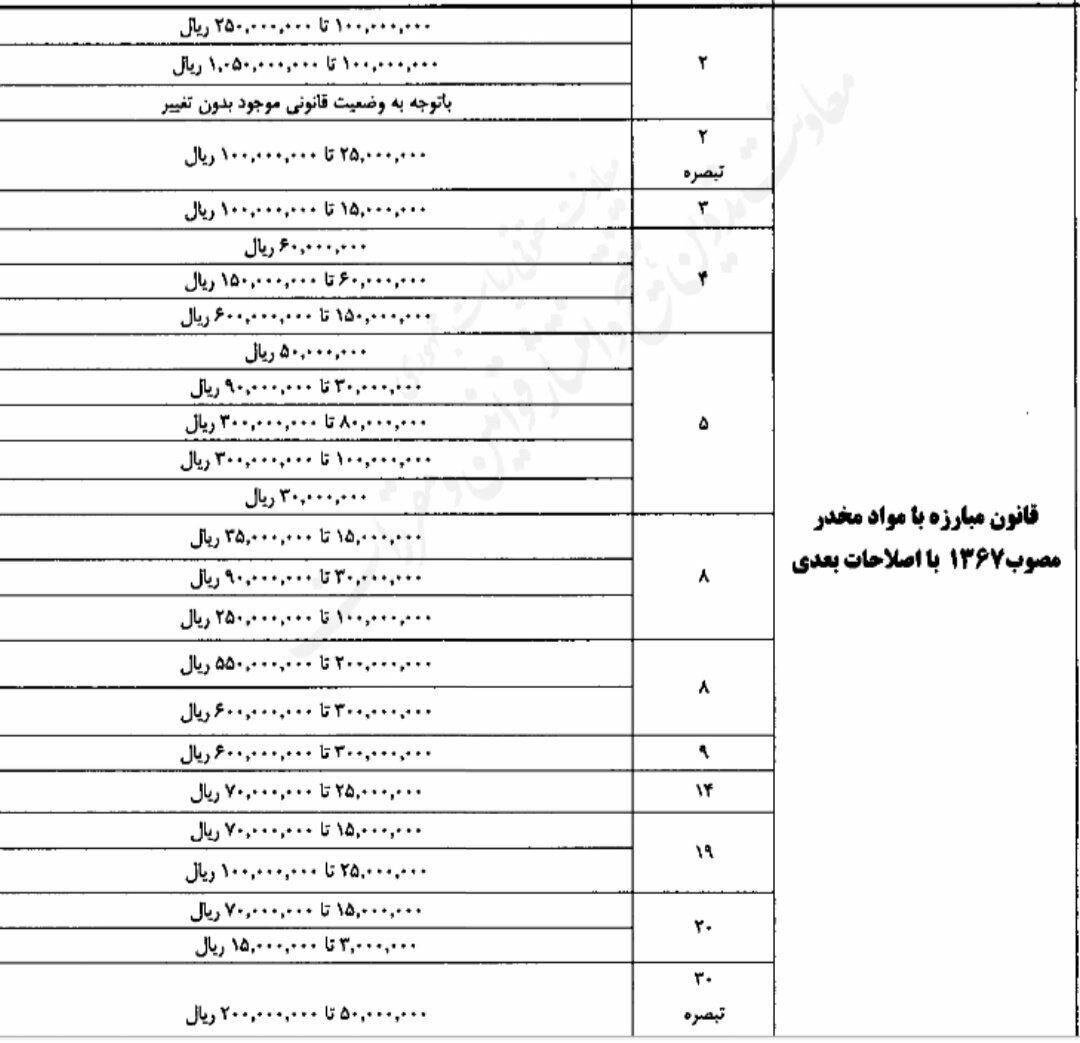 قانون مبارزه با مواد مخدر
مصوب۱۳۶۷ با اصلاحات بعدی
۲
۱۰۰,۰۰۰,۰۰۰ تا ۲۵۰,۰۰۰,۰۰۰ ریال
۱۰۰,۰۰۰,۰۰۰ تا ۱,۰۵۰,۰۰۰,۰۰۰ ریال
باتوجه به وضعیت قانونی موجود بدون تغییر
۲
تبصره
۲۵,۰۰۰,۰۰۰ تا ۱۰۰,۰۰۰,۰۰۰ ریال
۳
۱۵,۰۰۰,۰۰۰ تا ۱۰۰,۰۰۰,۰۰۰ ریال
۴
۶۰,۰۰۰,۰۰۰ ریال
۶۰,۰۰۰,۰۰۰ تا ۱۵۰,۰۰۰,۰۰۰ ریال
۱۵۰,۰۰۰,۰۰۰ تا ۶۰۰,۰۰۰,۰۰۰ ریال
۵
۵۰,۰۰۰,۰۰۰ ریال
۳۰,۰۰۰,۰۰۰ تا ۹۰,۰۰۰,۰۰۰ ریال
۸۰,۰۰۰,۰۰۰ تا ۳۰۰,۰۰۰,۰۰۰ ریال
۱۰۰,۰۰۰,۰۰۰ تا ۳۰۰,۰۰۰,۰۰۰ ریال
۳۰,۰۰۰,۰۰۰ ریال
۸
۱۵,۰۰۰,۰۰۰ تا ۳۵,۰۰۰,۰۰۰ ریال
۳۰,۰۰۰,۰۰۰ تا ۹۰,۰۰۰,۰۰۰ ریال
۱۰۰,۰۰۰,۰۰۰ تا ۲۵۰,۰۰۰,۰۰۰ ریال
۸
۲۰۰,۰۰۰,۰۰۰ تا ۵۵۰,۰۰۰,۰۰۰ ریال
۳۰۰,۰۰۰,۰۰۰ تا ۶۰۰,۰۰۰,۰۰۰ ریال
۹
۳۰۰,۰۰۰,۰۰۰ تا ۶۰۰,۰۰۰,۰۰۰ ریال
۱۴
۲۵,۰۰۰,۰۰۰ تا ۷۰,۰۰۰,۰۰۰ ریال
۱۹
۱۵,۰۰۰,۰۰۰ تا ۷۰,۰۰۰,۰۰۰ ریال
۲۵,۰۰۰,۰۰۰ تا ۱۰۰,۰۰۰,۰۰۰ ریال
۲۰
۱۵,۰۰۰,۰۰۰ تا ۷۰,۰۰۰,۰۰۰ ریال
۳,۰۰۰,۰۰۰ تا ۱۵,۰۰۰,۰۰۰ ریال
۳۰
تبصره
۵۰,۰۰۰,۰۰۰ تا ۲۰۰,۰۰۰,۰۰۰ ریال